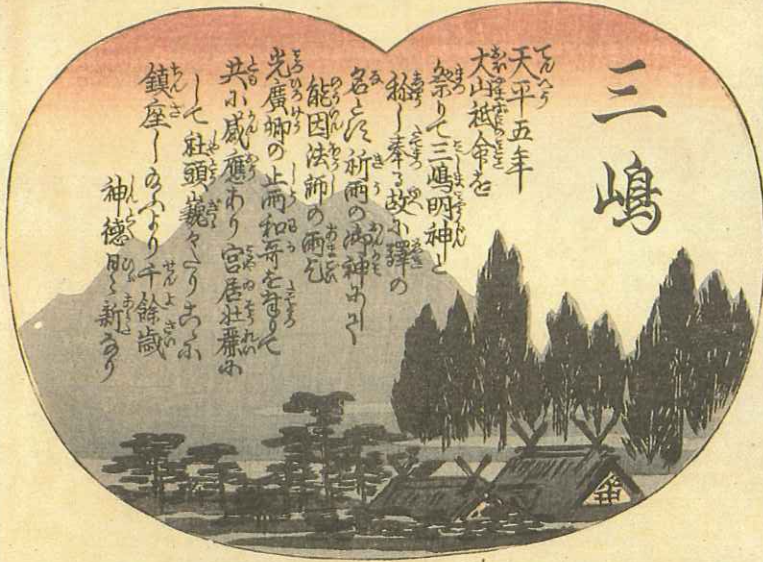 三嶋
天平五年
大山祇命を
祭りて三嶋明神と
称し奉る故に驛の
名とす祈雨の御神にして
能因法師の雨乞
光廣卿の止雨和哥を奉りて
共に感應あり宮居壮麗に
して社頭巍々たりこゝに
鎮座し給ふより千餘歳
神徳日々新なり